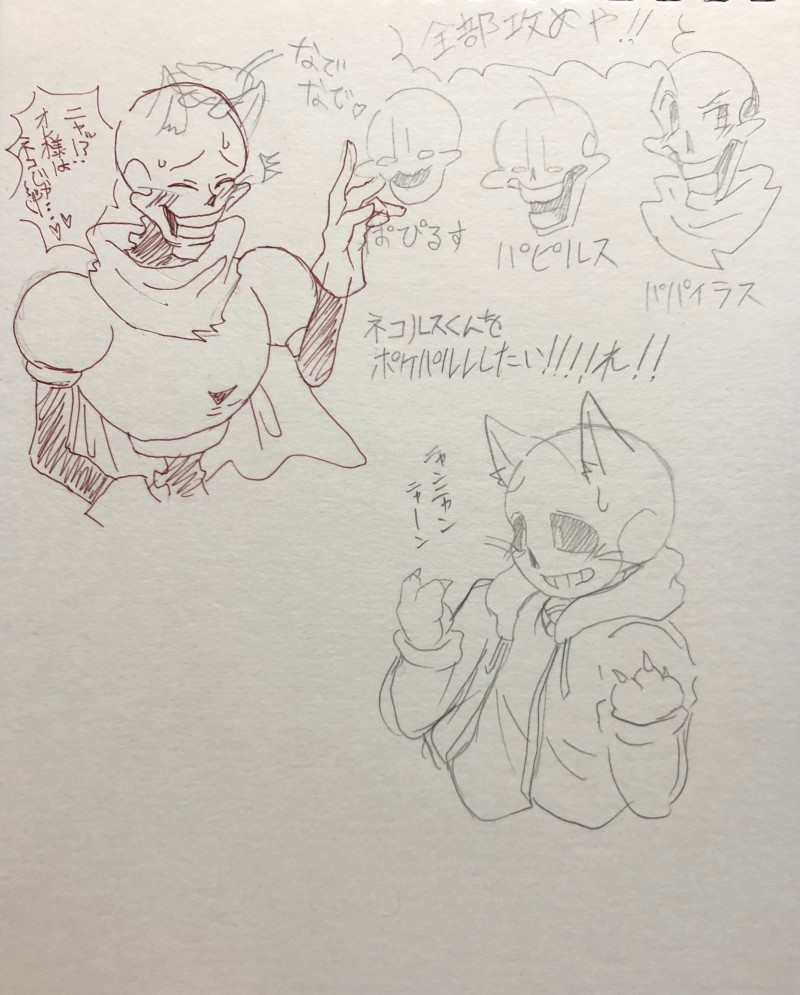 全部攻めや!!
と
なで
なで♡
ニャッ!?
オレ様は
ぱぴるす
パピルス
パパイラス
ネコルスくんを
ポケパルレしたい!!!!れ!!
ニャンニャン
ニャーン